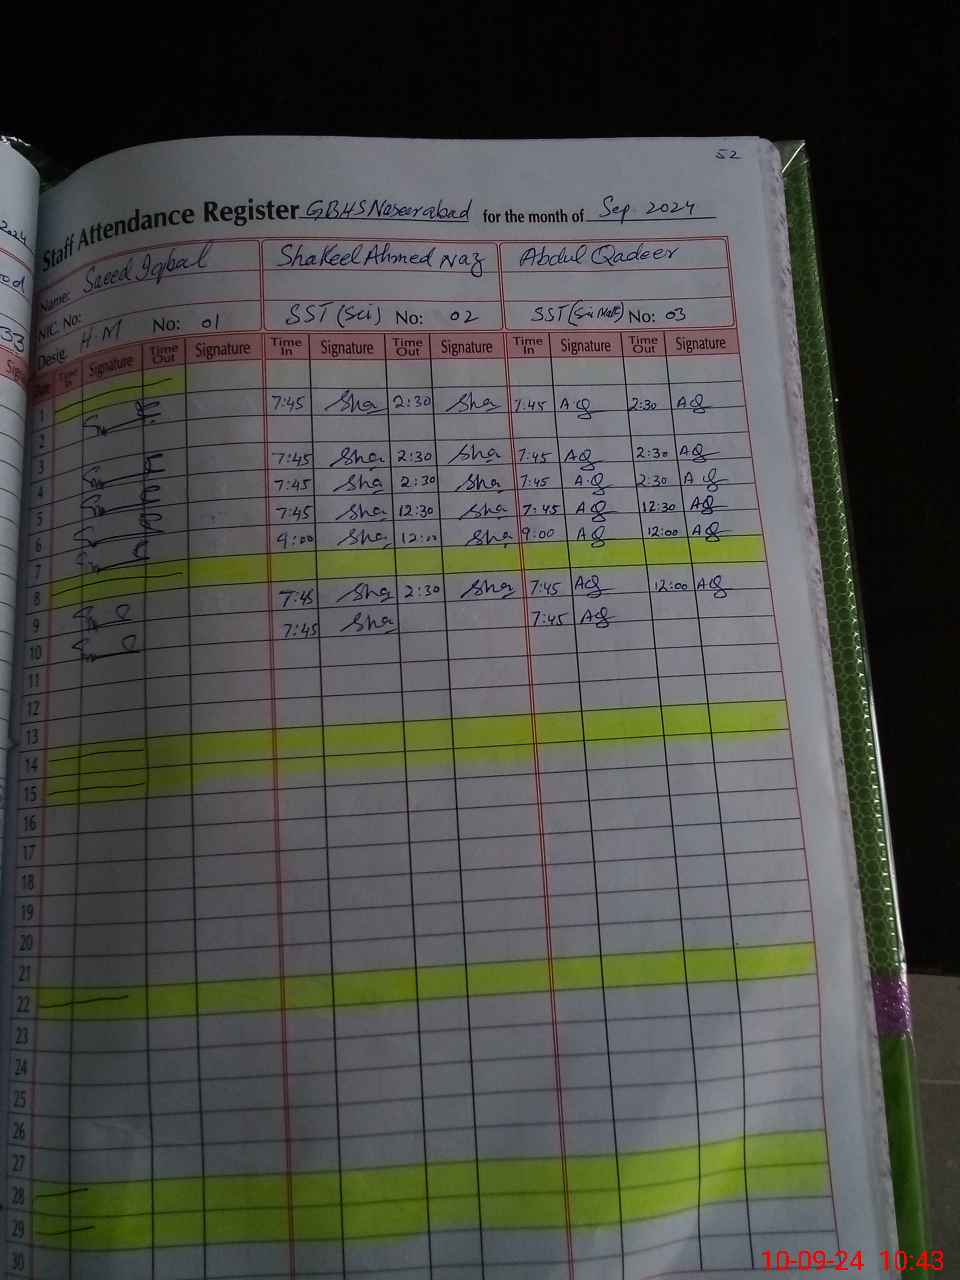 52
Staff Attendance Register GBHS Naseerabad for the month of Sep 2024
Name: Saeed Iqbal Shakeel Ahmed Naz Abdul Qadeer
NIC. No:
Desig. H.M No: 01 SST (Sci) No: 02 SST No: 03
Time In Signature Time Out Signature Time In Signature Time Out Signature Time In Signature Time Out Signature
1
2 7:45 Sha 2:30 Sha 7:45 AQ 2:30 AQ
3 7:45 Sha 2:30 Sha 7:45 AQ 2:30 AQ
4 7:45 Sha 2:30 Sha 7:45 AQ 2:30 AQ
5 7:45 Sha 12:30 Sha 7:45 AQ 12:30 AQ
6 9:00 Sha 12:00 Sha 9:00 AQ 12:00 AQ
7
8
9 7:45 Sha 2:30 Sha 7:45 AQ 12:00 AQ
10 7:45 Sha 7:45 AQ
11
12
13
14
15
16
17
18
19
20
21
22
23
24
25
26
27
28
29
30
2024
33
10-09-24 10:43